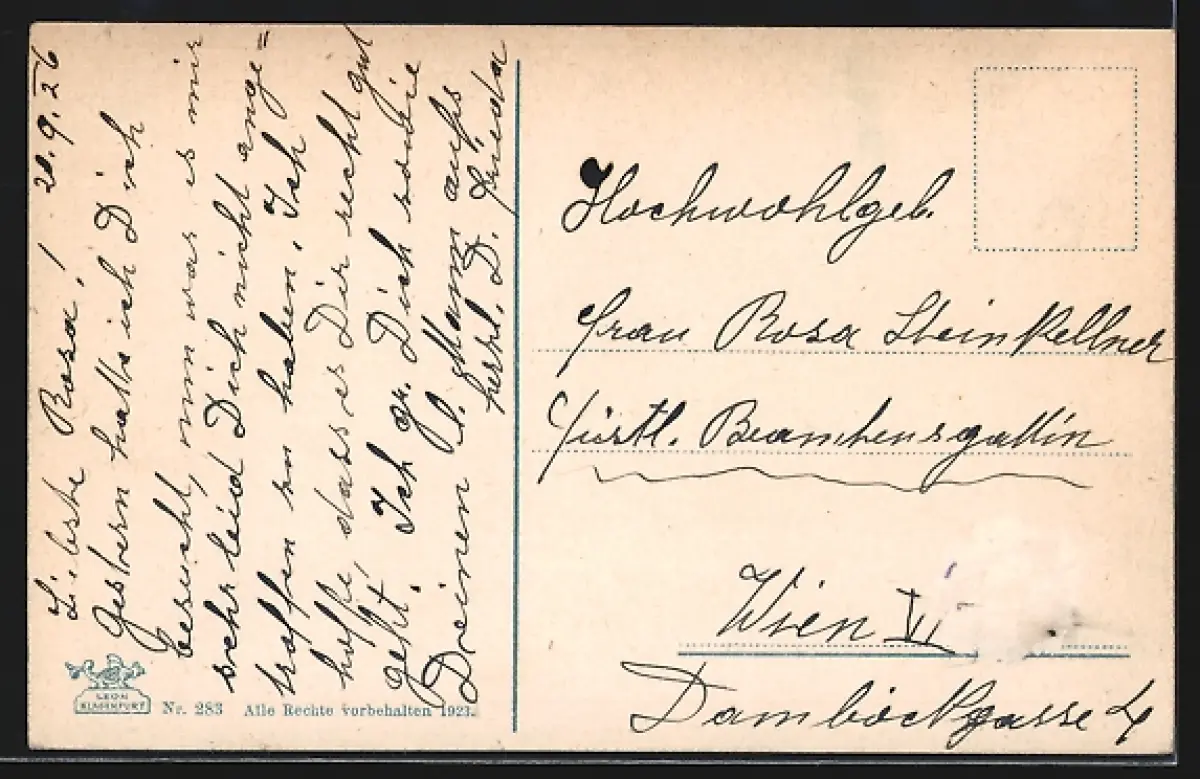 Liebste Rosa! 20.9.26
Gestern hatte ich Dich
besucht, nun war es mir
sehr leid Dich nicht ange=
troffen zu haben. Ich
hoffe, dass es Dir recht gut
geht. Ich gr. Dich sowie
Deinen l. Mann aufs
herzl. D. Frieda
LEON
KLAGENFURT
Nr. 283 Alle Rechte vorbehalten 1923.
Hochwohlgeb.
Frau Rosa Steinkellner
Fürstl. Beamtensgattin
Wien VI
Damböckgasse 4